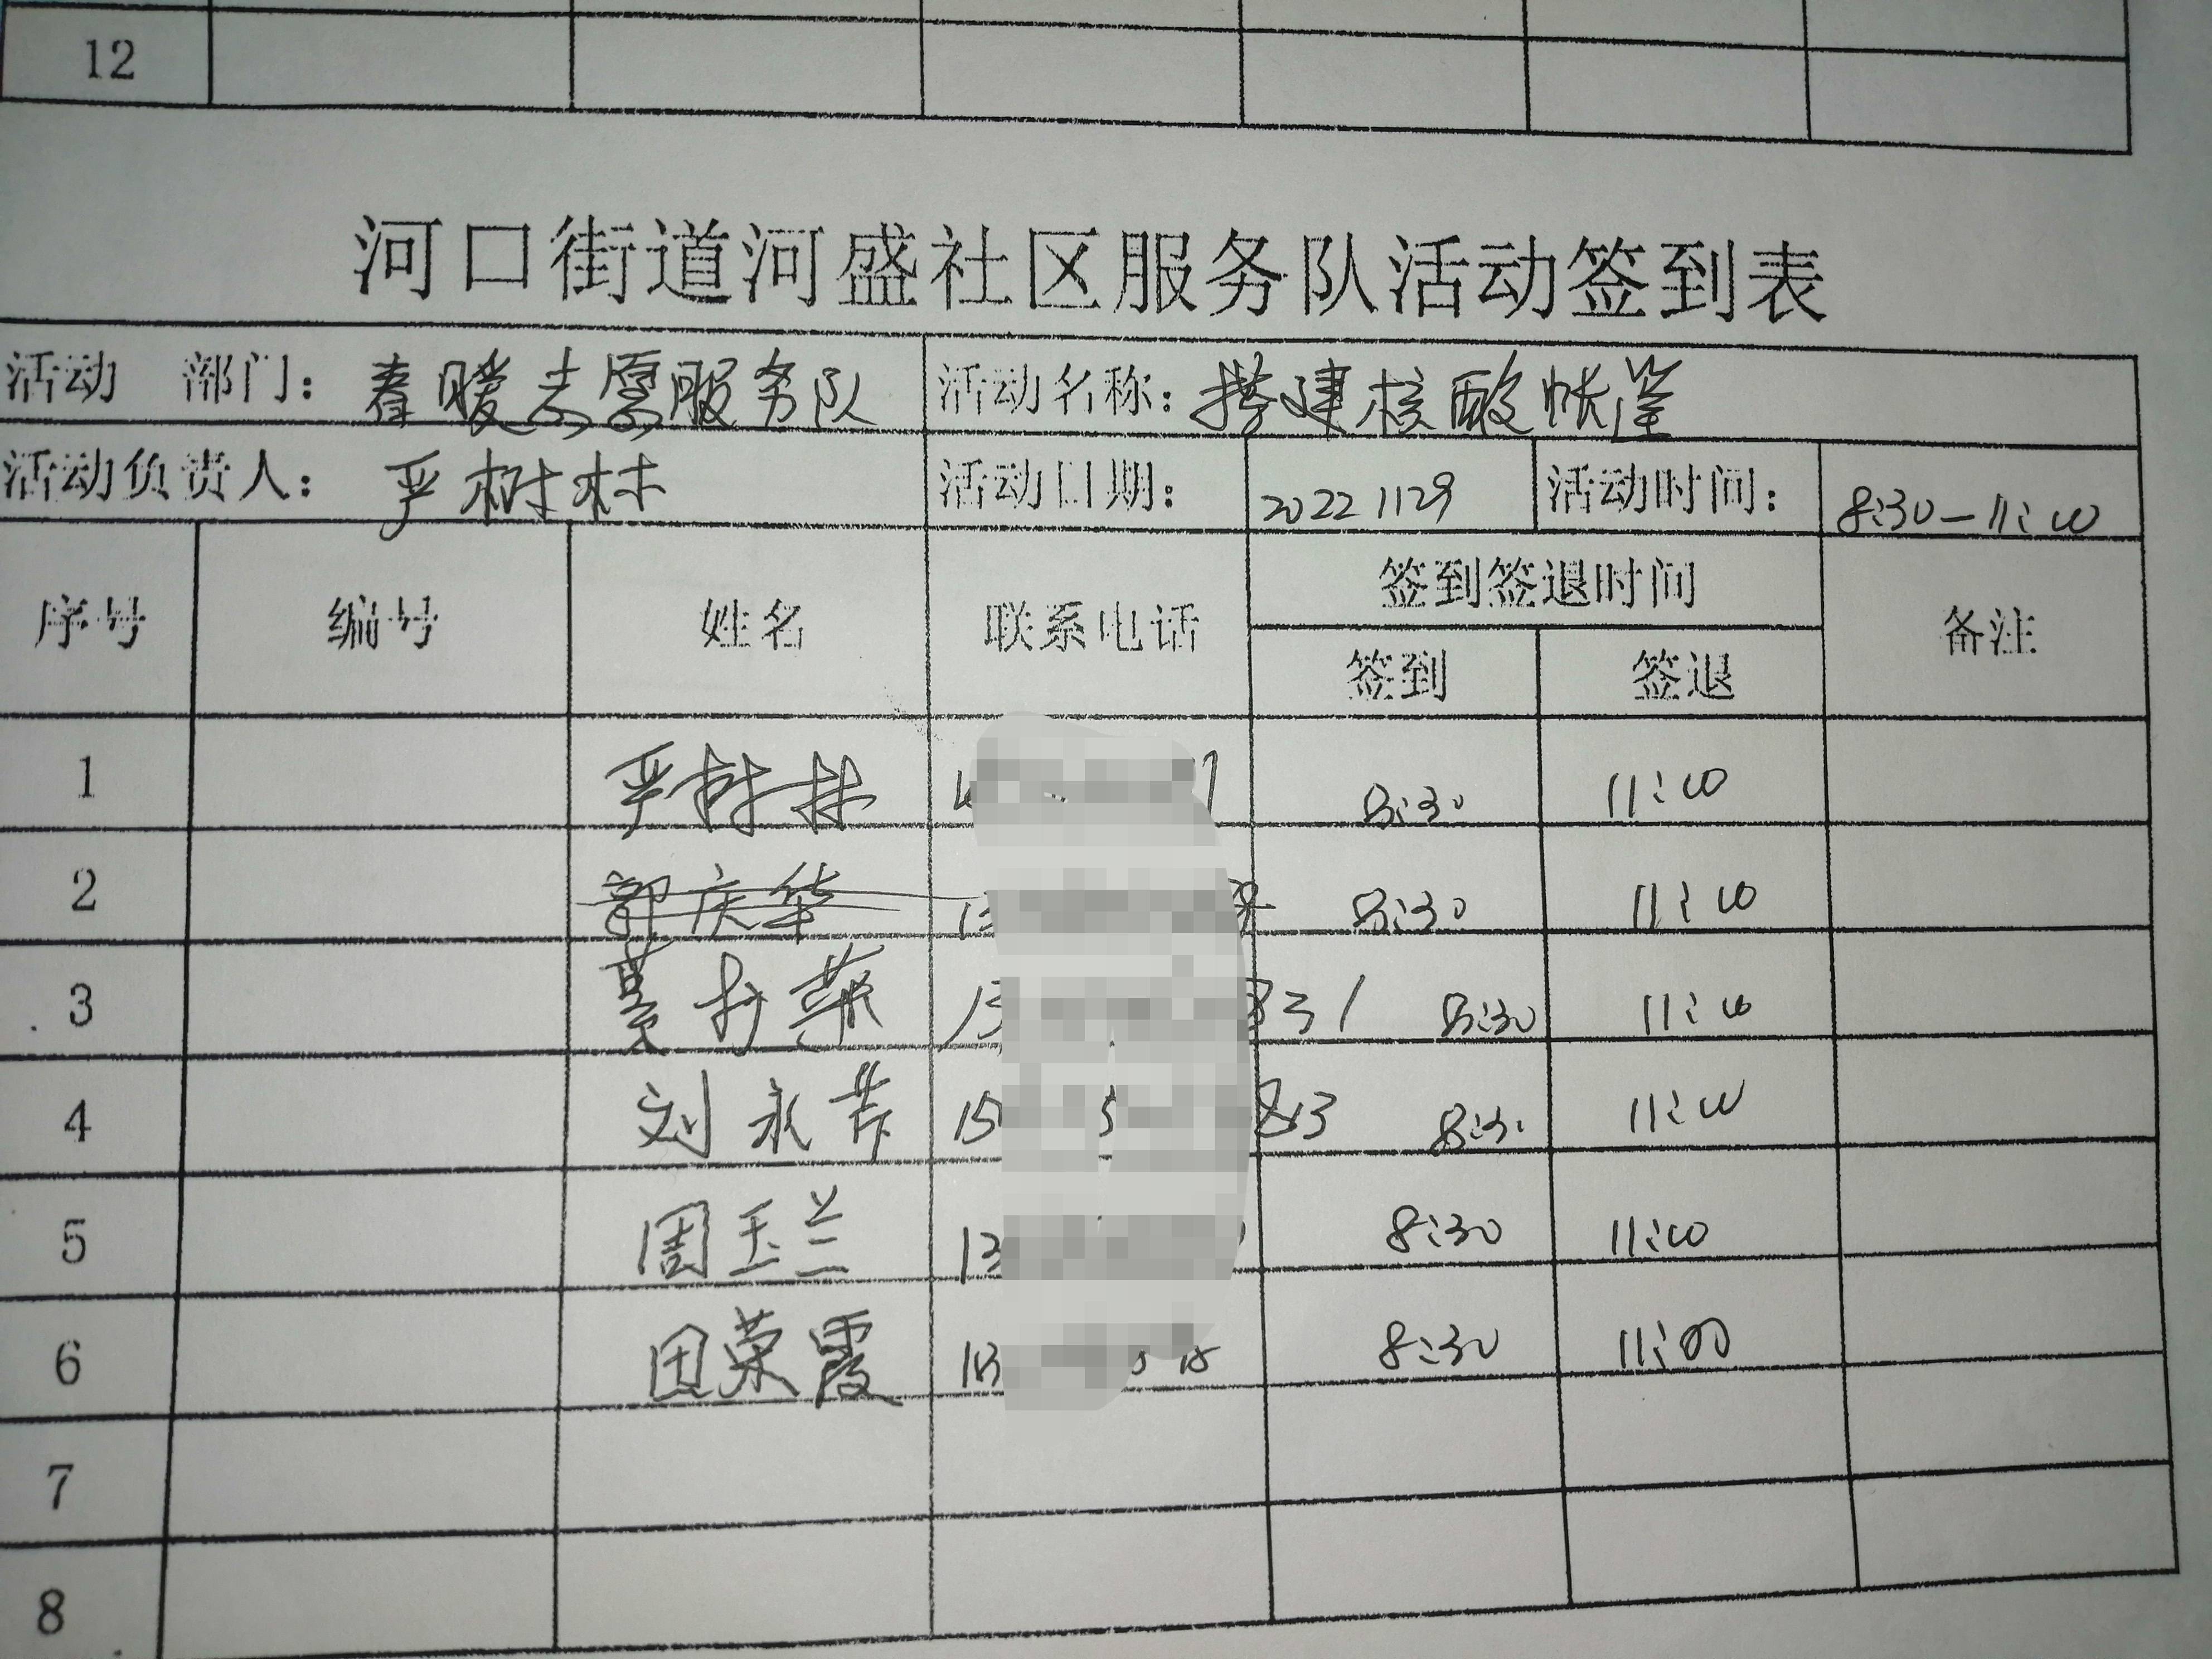 12
河口街道河盛社区服务队活动签到表
活动 部门：春暖志愿服务队 活动名称：搭建核酸帐篷
活动负责人：严树林 活动日期：20221129 活动时间：8:30-11:00
序号 编号 姓名 联系电话 签到签退时间 备注
签到 签退
1 严树林 8:30 11:00
2 郭庆华 8:30 11:00
3 831 8:30 11:00
4 刘永芹 15 813 8:30 11:00
5 周玉兰 13 8:30 11:00
6 田荣霞 18 8:30 11:00
7
8